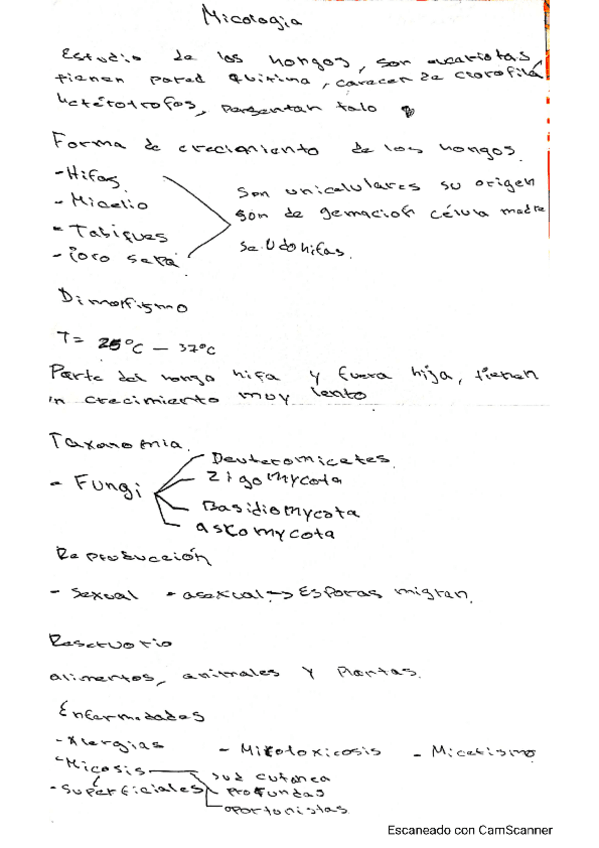 Micologia
Estudio de los hongos, son eucariotas,
tienen pared quitina, carecen de clorofila
heterotrofos, presentan talo
Forma de crecimiento de los hongos
- Hifas
- Micelio
- Tabiques
Son unicelulares su origen
son de gemación célula madre
seudohifas.
Dimorfismo
T= 25°C - 37°C
Parte del hongo hifa y fuera hija, tienen
un crecimiento muy lento
Taxonomia
- Fungi
Deuteromicetes
Zigomycota
Basidiomycota
ascomycota
Reproducción
- Sexual - asexual -> Esporas migran.
Reservorio
alimentos, animales y Plantas.
Enfermedades
- Alergias - Micotoxicosis - Micetismo
- Micosis
- Superficiales
sub cutanea
profundas
oportunistas
Escaneado con CamScanner